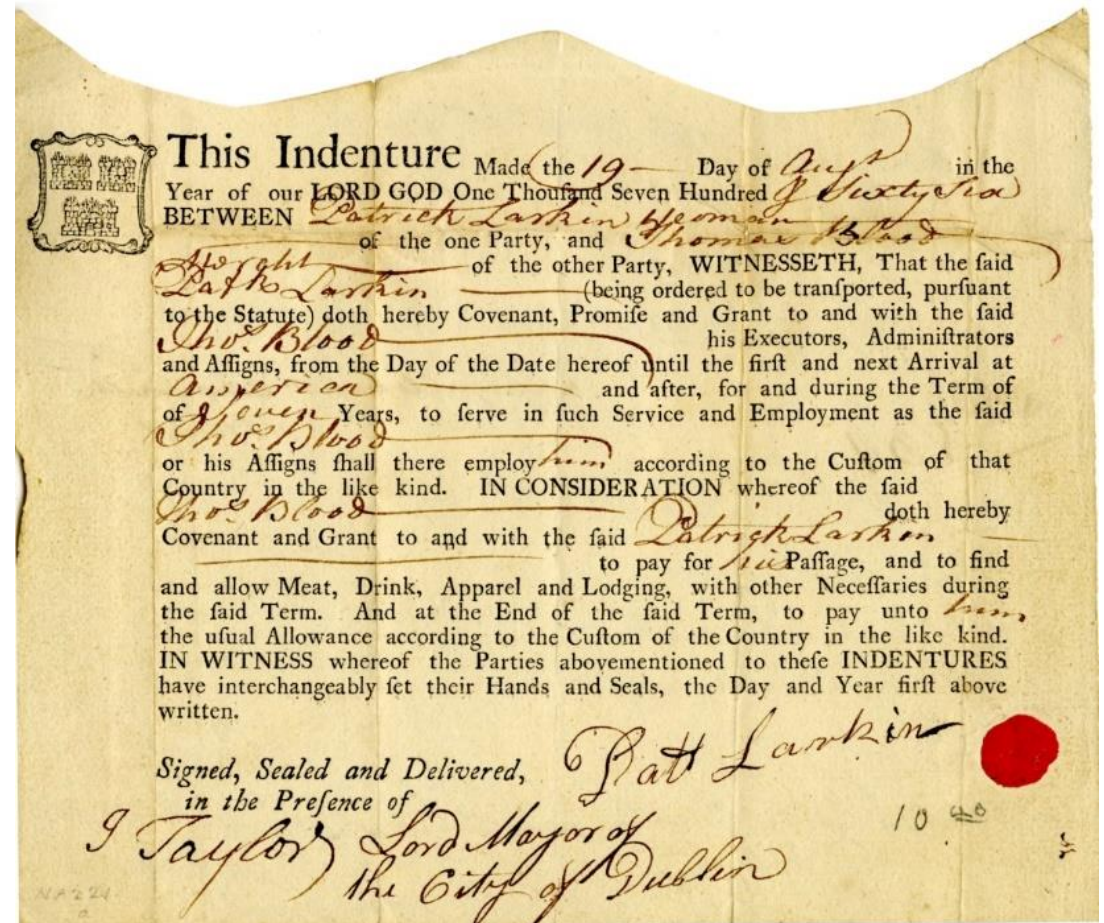 This Indenture Made the 19 Day of Augt in the
Year of our LORD GOD One Thouſand Seven Hundred & Sixty Six
BETWEEN Patrick Larkin Yeoman
of the one Party, and Thomas Blood
Mercht of the other Party, WITNESSETH, That the ſaid
Patk Larkin (being ordered to be tranſported, purſuant
to the Statute) doth hereby Covenant, Promiſe and Grant to and with the ſaid
Thos. Blood his Executors, Adminiſtrators
and Aſſigns, from the Day of the Date hereof until the firſt and next Arrival at
America and after, for and during the Term of
of Seven Years, to ſerve in ſuch Service and Employment as the ſaid
Thos. Blood
or his Aſſigns ſhall there employ him according to the Cuſtom of that
Country in the like kind. IN CONSIDERATION whereof the ſaid
Thos. Blood doth hereby
Covenant and Grant to and with the ſaid Patrick Larkin
to pay for his Paſſage, and to find
and allow Meat, Drink, Apparel and Lodging, with other Neceſſaries during
the ſaid Term. And at the End of the ſaid Term, to pay unto him
the uſual Allowance according to the Cuſtom of the Country in the like kind.
IN WITNESS whereof the Parties abovementioned to theſe INDENTURES
have interchangeably ſet their Hands and Seals, the Day and Year firſt above
written.
Signed, Sealed and Delivered,
in the Preſence of
Patt Larkin
J Taylor Lord Mayor of
the City of Dublin
10